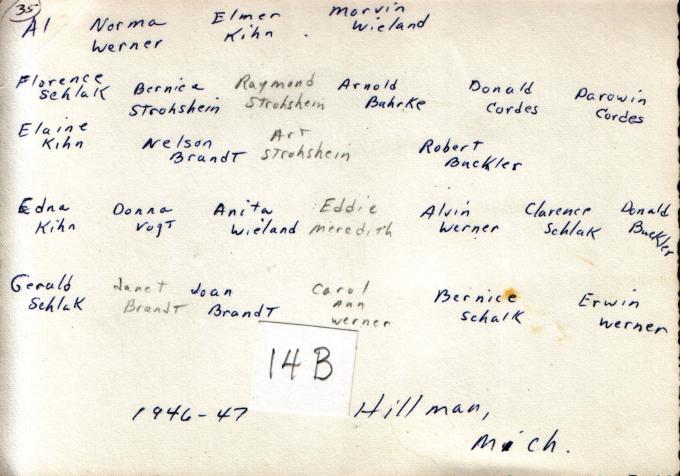 35
Al Norma Elmer Marvin
Werner Kihn Wieland
Florence Bernice Raymond Arnold Donald Darowin
Schlak Strohshein Strohshein Bahrke Cordes Cordes
Elaine Nelson Art Robert
Kihn Brandt Strohshein Buckler
Edna Donna Anita Eddie Alvin Clarence Donald
Kihn Vogt Wieland Meredith Werner Schlak Buckler
Gerald Janet Joan Carol Bernice Erwin
Schlak Brandt Brandt Ann Schalk Werner
Werner
14B
1946-47 Hillman,
Mich.